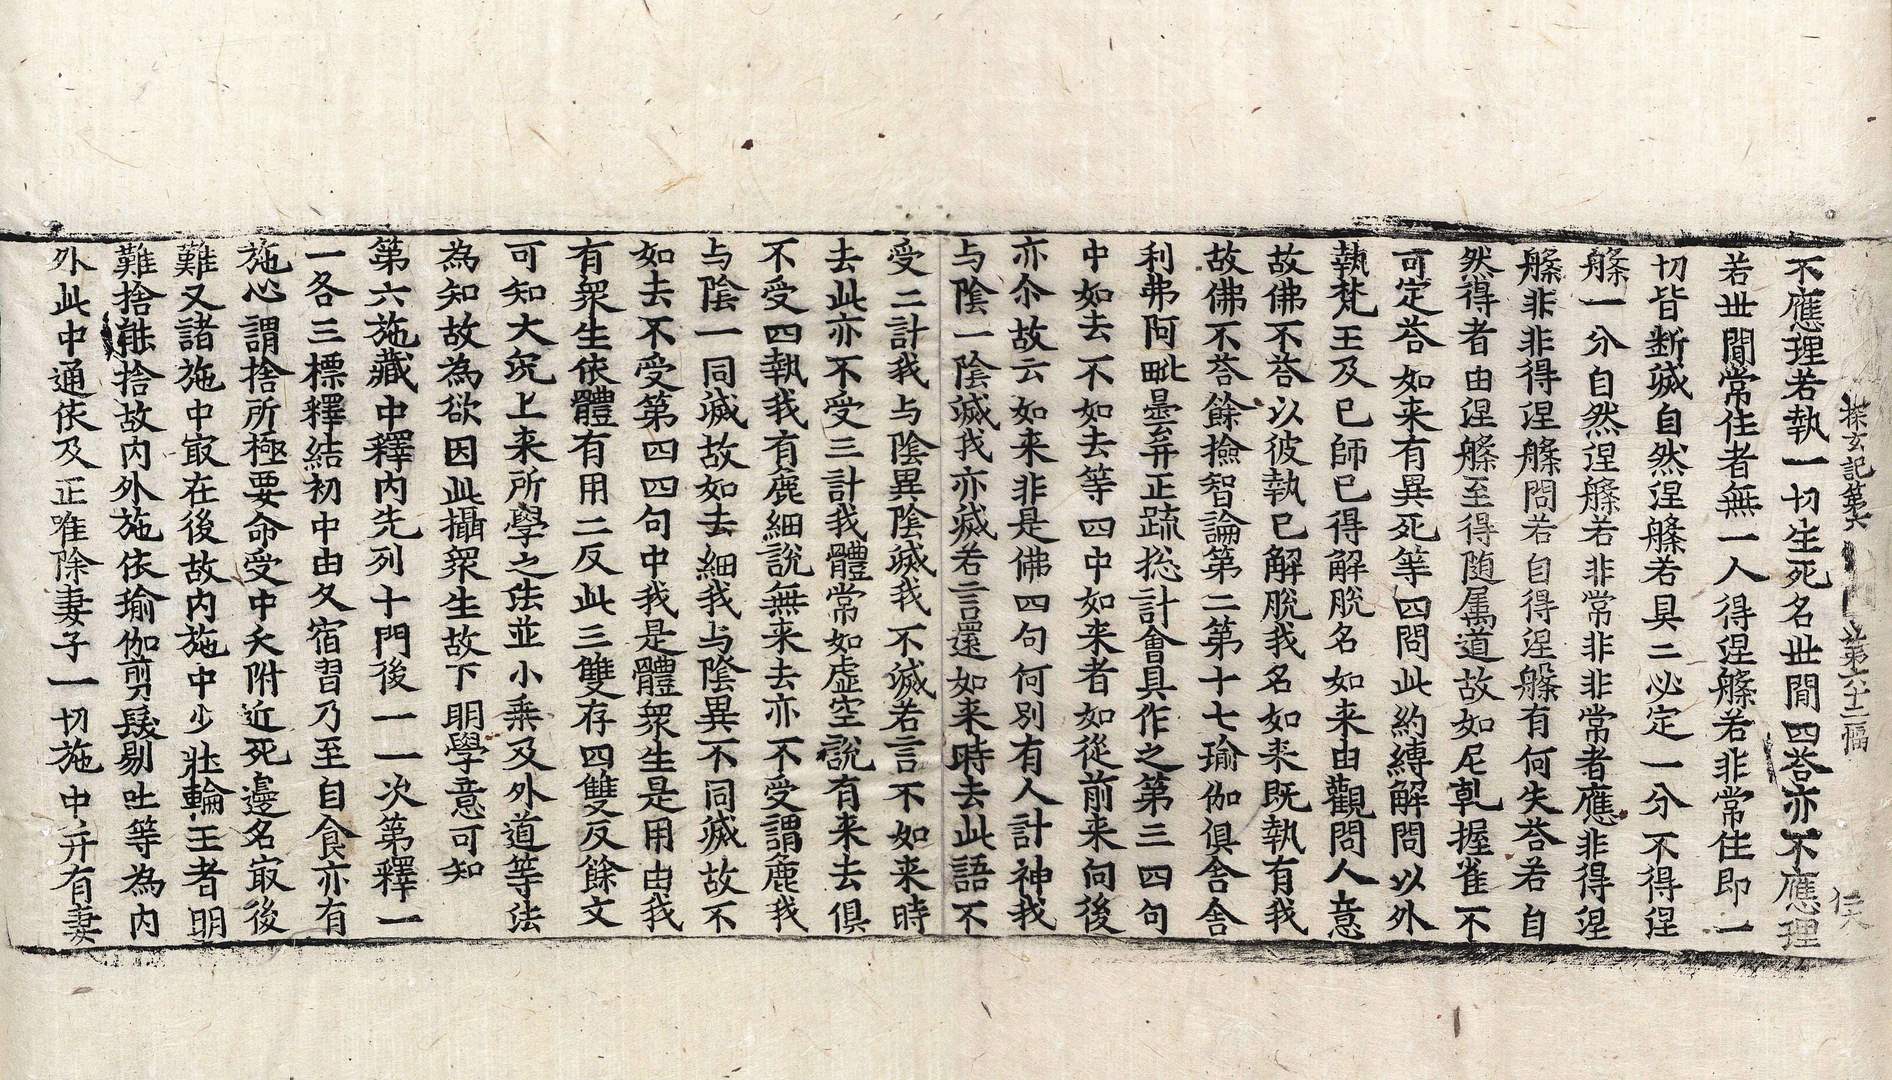 探玄記第六 第六十二幅 侯
不應理若執一切生死名世間四荅亦不應理
若世間常住者無一人得涅槃若非常住即一
切皆断滅自然涅槃若具二必定一分不得涅
槃一分自然涅槃若非常非非常者應非得涅
槃非非得涅槃問若自得涅槃有何失荅若自
然得者由涅槃至得随属道故如尼乹握雀不
可定荅如来有異死等四問此約縛解問以外
執梵王及已師已得解脫名如来由觀問人意
故佛不荅以彼執已解脫我名如来既執有我
故佛不荅餘撿智論第二第十七瑜伽俱舍舍
利弗阿毗曇弄正䟽揔計會具作之第三四句
中如去不如去等四中如来者如從前来向後
亦尒故云如来非是佛四句何別有人計神我
与陰一陰滅我亦滅若言還如来時去此語不
受二計我与陰異陰滅我不滅若言不如来時
去此亦不受三計我體常如虚空說有来去俱
不受四執我有麁細說無来去亦不受謂麁我
与陰一同滅故如去細我与陰異不同滅故不
如去不受第四四句中我是體衆生是用由我
有衆生依體有用二反此三雙存四雙反餘文
可知大況上来所學之法並小乘及外道等法
為知故為欲因此攝衆生故下明學意可知
第六施藏中釋内先列十門後一一次第釋一
一各三標釋結初中由久宿習乃至自食亦有
施心謂捨所極要命受中夭附近死邊名㝡後
難又諸施中㝡在後故内施中少壯輪王者明
難捨能捨故内外施依瑜伽剪髮剔吐等為内
外此中通依及正唯除妻子一切施中并有妻